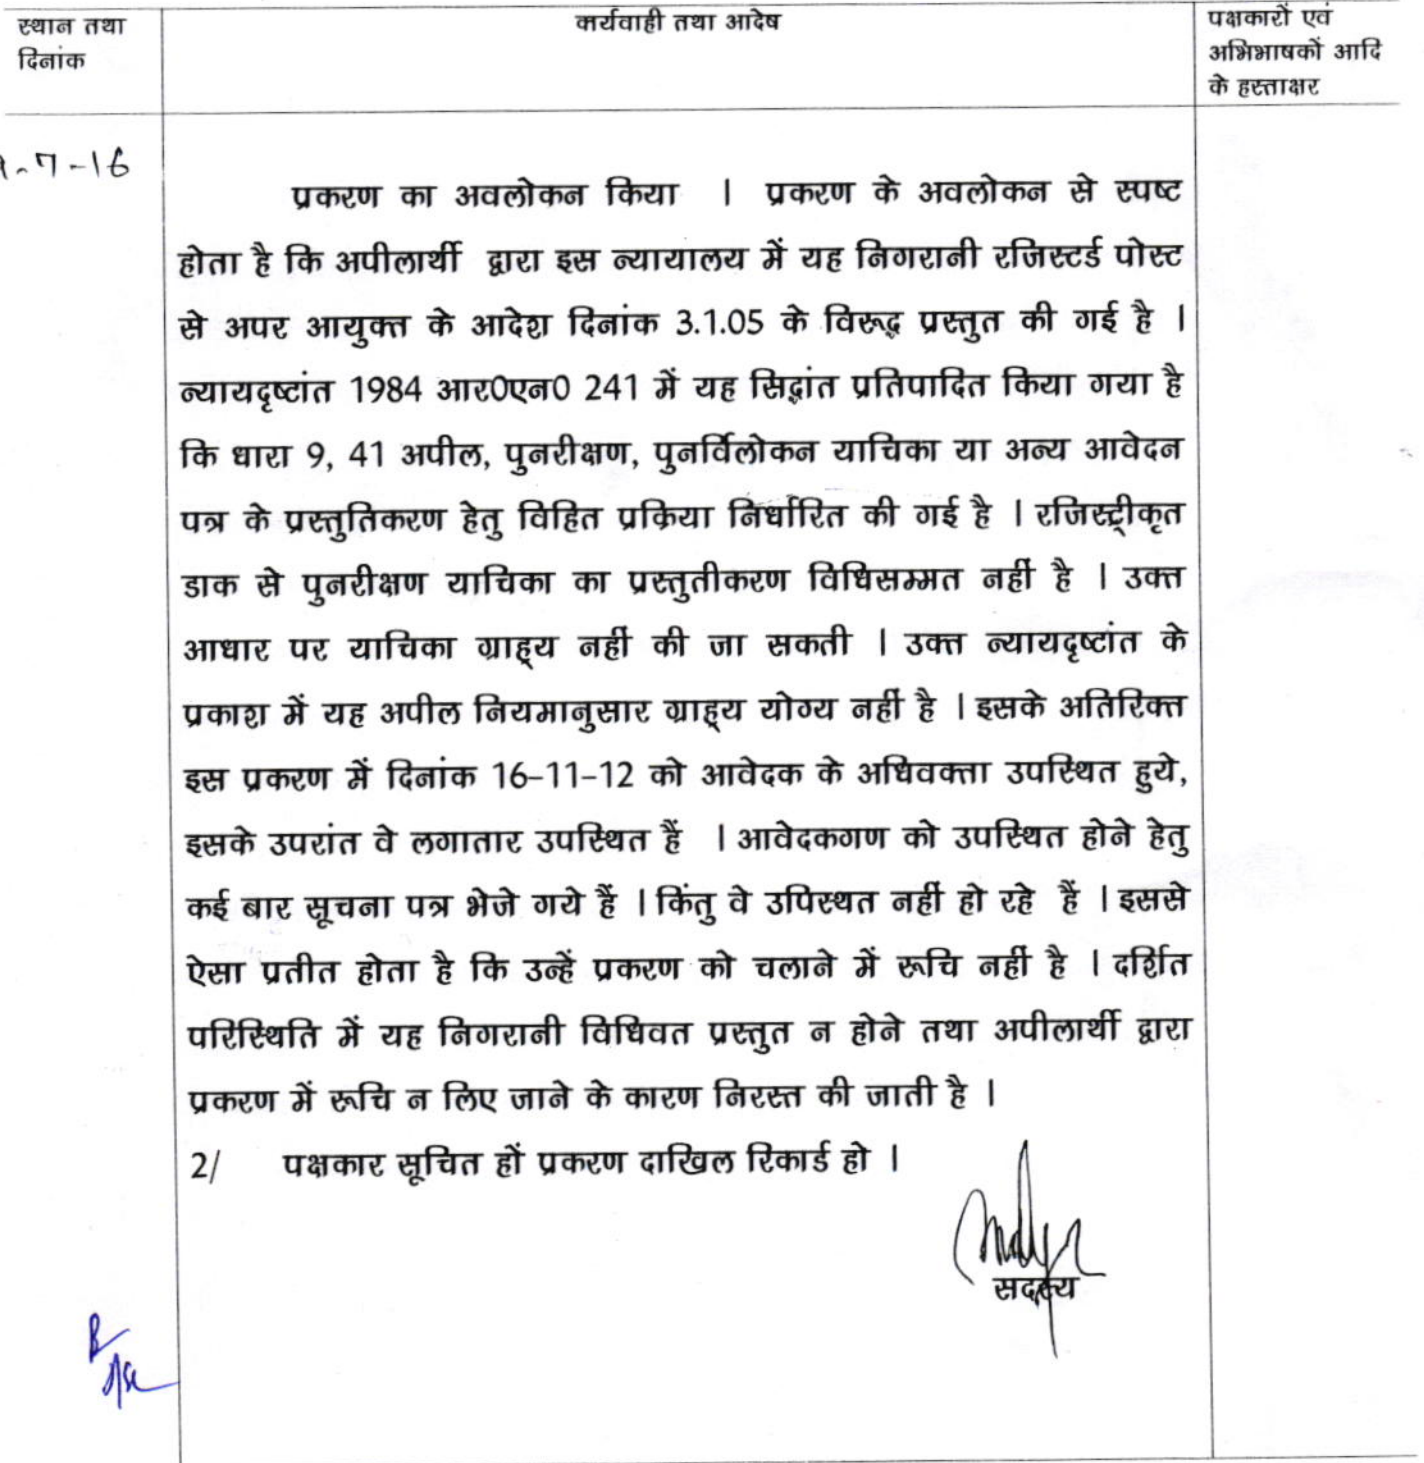 स्थान तथा
दिनांक
कार्यवाही तथा आदेष
पक्षकारों एवं
अभिभाषकों आदि
के हस्ताक्षर
-7-16
प्रकरण का अवलोकन किया । प्रकरण के अवलोकन से स्पष्ट
होता है कि अपीलार्थी द्वारा इस न्यायालय में यह निगरानी रजिस्टर्ड पोस्ट
से अपर आयुक्त के आदेश दिनांक 3.1.05 के विरूद्ध प्रस्तुत की गई है ।
न्यायदृष्टांत 1984 आर0एन0 241 में यह सिद्धांत प्रतिपादित किया गया है
कि धारा 9, 41 अपील, पुनरीक्षण, पुनर्विलोकन याचिका या अन्य आवेदन
पत्र के प्रस्तुतिकरण हेतु विहित प्रक्रिया निर्धारित की गई है । रजिस्ट्रीकृत
डाक से पुनरीक्षण याचिका का प्रस्तुतीकरण विधिसम्मत नहीं है । उक्त
आधार पर याचिका ग्राह्य नहीं की जा सकती । उक्त न्यायदृष्टांत के
प्रकाश में यह अपील नियमानुसार ग्राह्य योग्य नहीं है । इसके अतिरिक्त
इस प्रकरण में दिनांक 16-11-12 को आवेदक के अधिवक्ता उपस्थित हुये,
इसके उपरांत वे लगातार उपस्थित हैं । आवेदकगण को उपस्थित होने हेतु
कई बार सूचना पत्र भेजे गये हैं । किंतु वे उपिस्थत नहीं हो रहे हैं । इससे
ऐसा प्रतीत होता है कि उन्हें प्रकरण को चलाने में रूचि नहीं है । दर्शित
परिस्थिति में यह निगरानी विधिवत प्रस्तुत न होने तथा अपीलार्थी द्वारा
प्रकरण में रूचि न लिए जाने के कारण निरस्त की जाती है ।
2/ पक्षकार सूचित हों प्रकरण दाखिल रिकार्ड हो ।
सदस्य